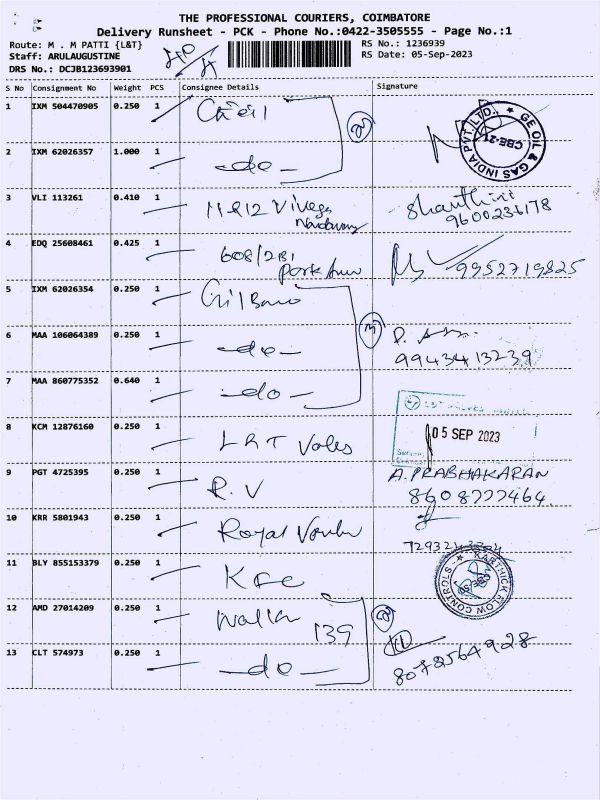 THE PROFESSIONAL COURIERS, COIMBATORE
Delivery Runsheet - PCK - Phone No.:0422-3505555 - Page No.:1
Route: M . M PATTI {L&T}
Staff: ARULAUGUSTINE
DRS No.: DCJB123693901
RS No.: 1236939
RS Date: 05-Sep-2023
S No Consignment No Weight PCS Consignee Details Signature
1 IXM 504470905 0.250 1
GE OIL & GAS INDIA PVT. LTD. CBE-21
2 IXM 62026357 1.000 1 -do-
3 VLI 113261 0.410 1
Shanthini
9600236178
4 EDQ 25608461 0.425 1 608/2B1
9952719825
5 IXM 62026354 0.250 1
6 MAA 106064389 0.250 1 -do-
9943413239
7 MAA 860775352 0.640 1 -do-
8 KCM 12876160 0.250 1
05 SEP 2023
9 PGT 4725395 0.250 1 R.V
A. PRABHAKARAN
8608777464
10 KRR 5801943 0.250 1 Royal
11 BLY 855153379 0.250 1
KARTHICK FLOW CONTROLS
12 AMD 27014209 0.250 1 139
13 CLT 574973 0.250 1 -do-
8078564928